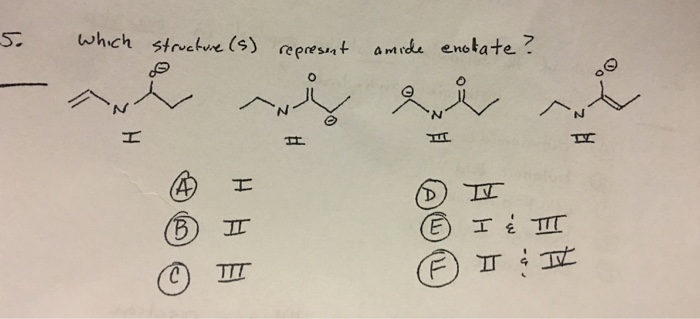 5. Which structure(s) represent amide enolate?
O⊖ O O O⊖
⊖
N N ⊖ N N
I II III IV
A I D IV
B II E I & III
C III F II & IV